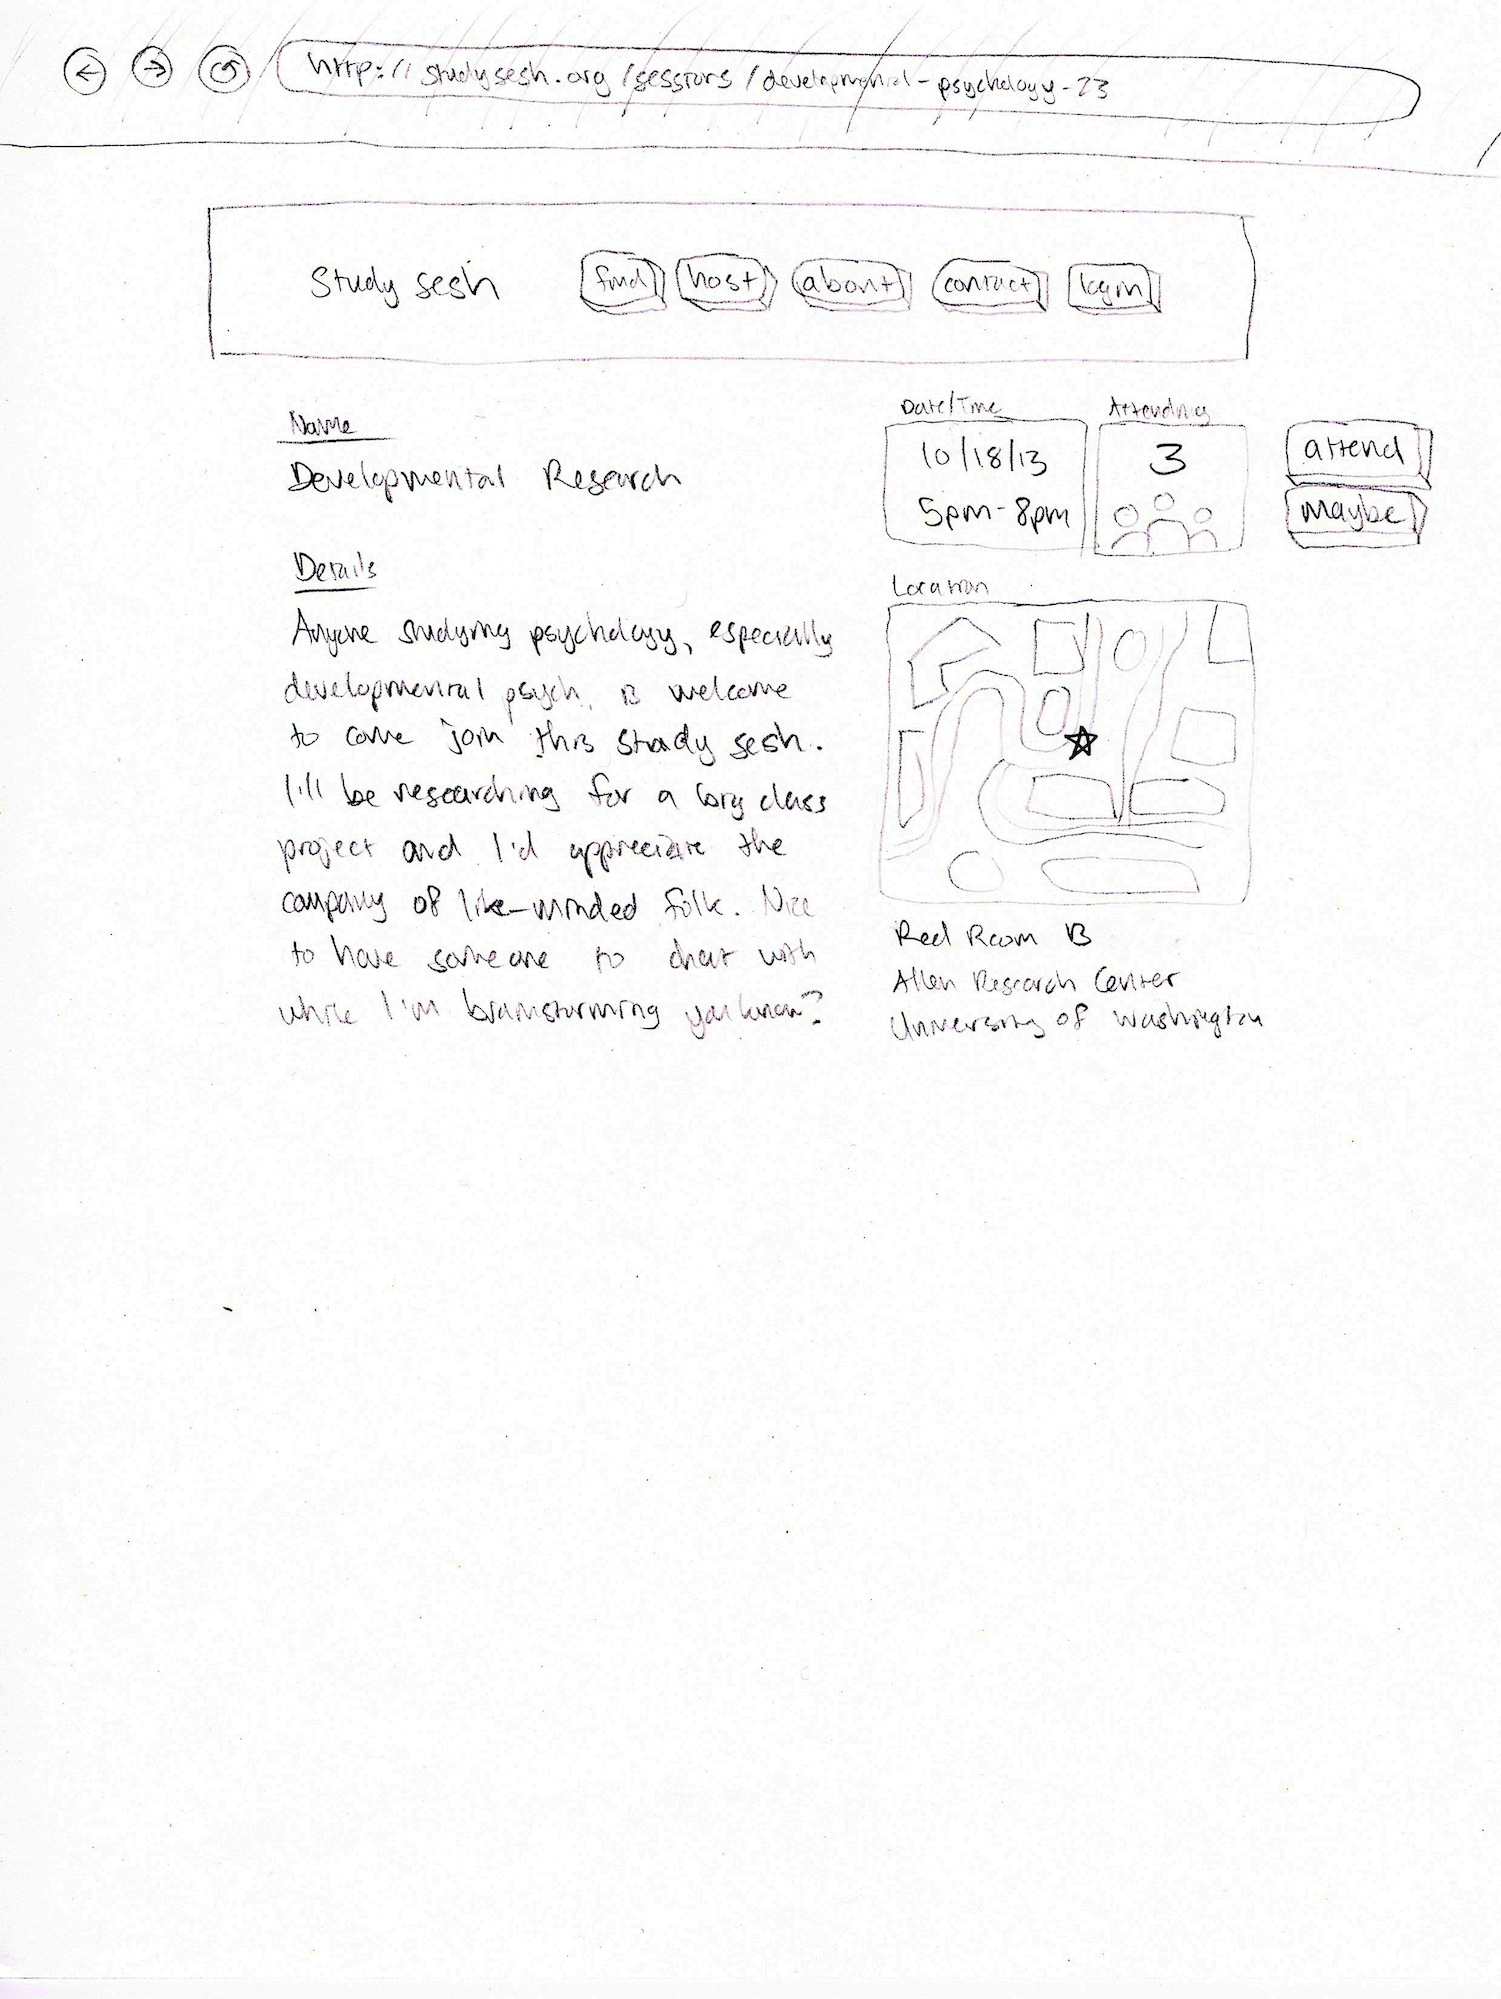 http://studysesh.org/sessions/developmental-psychology-23
Study sesh
find host about contact login
Name
Developmental Research
Details
Anyone studying psychology, especially
developmental psych, is welcome
to come join this study sesh.
I'll be researching for a long class
project and I'd appreciate the
company of like-minded folk. Nice
to have someone to chat with
while I'm brainstorming you know?
Date/Time
10/18/13
5pm-8pm
Attending
3
attend
maybe
Location
Red Room B
Allen Research Center
University of Washington